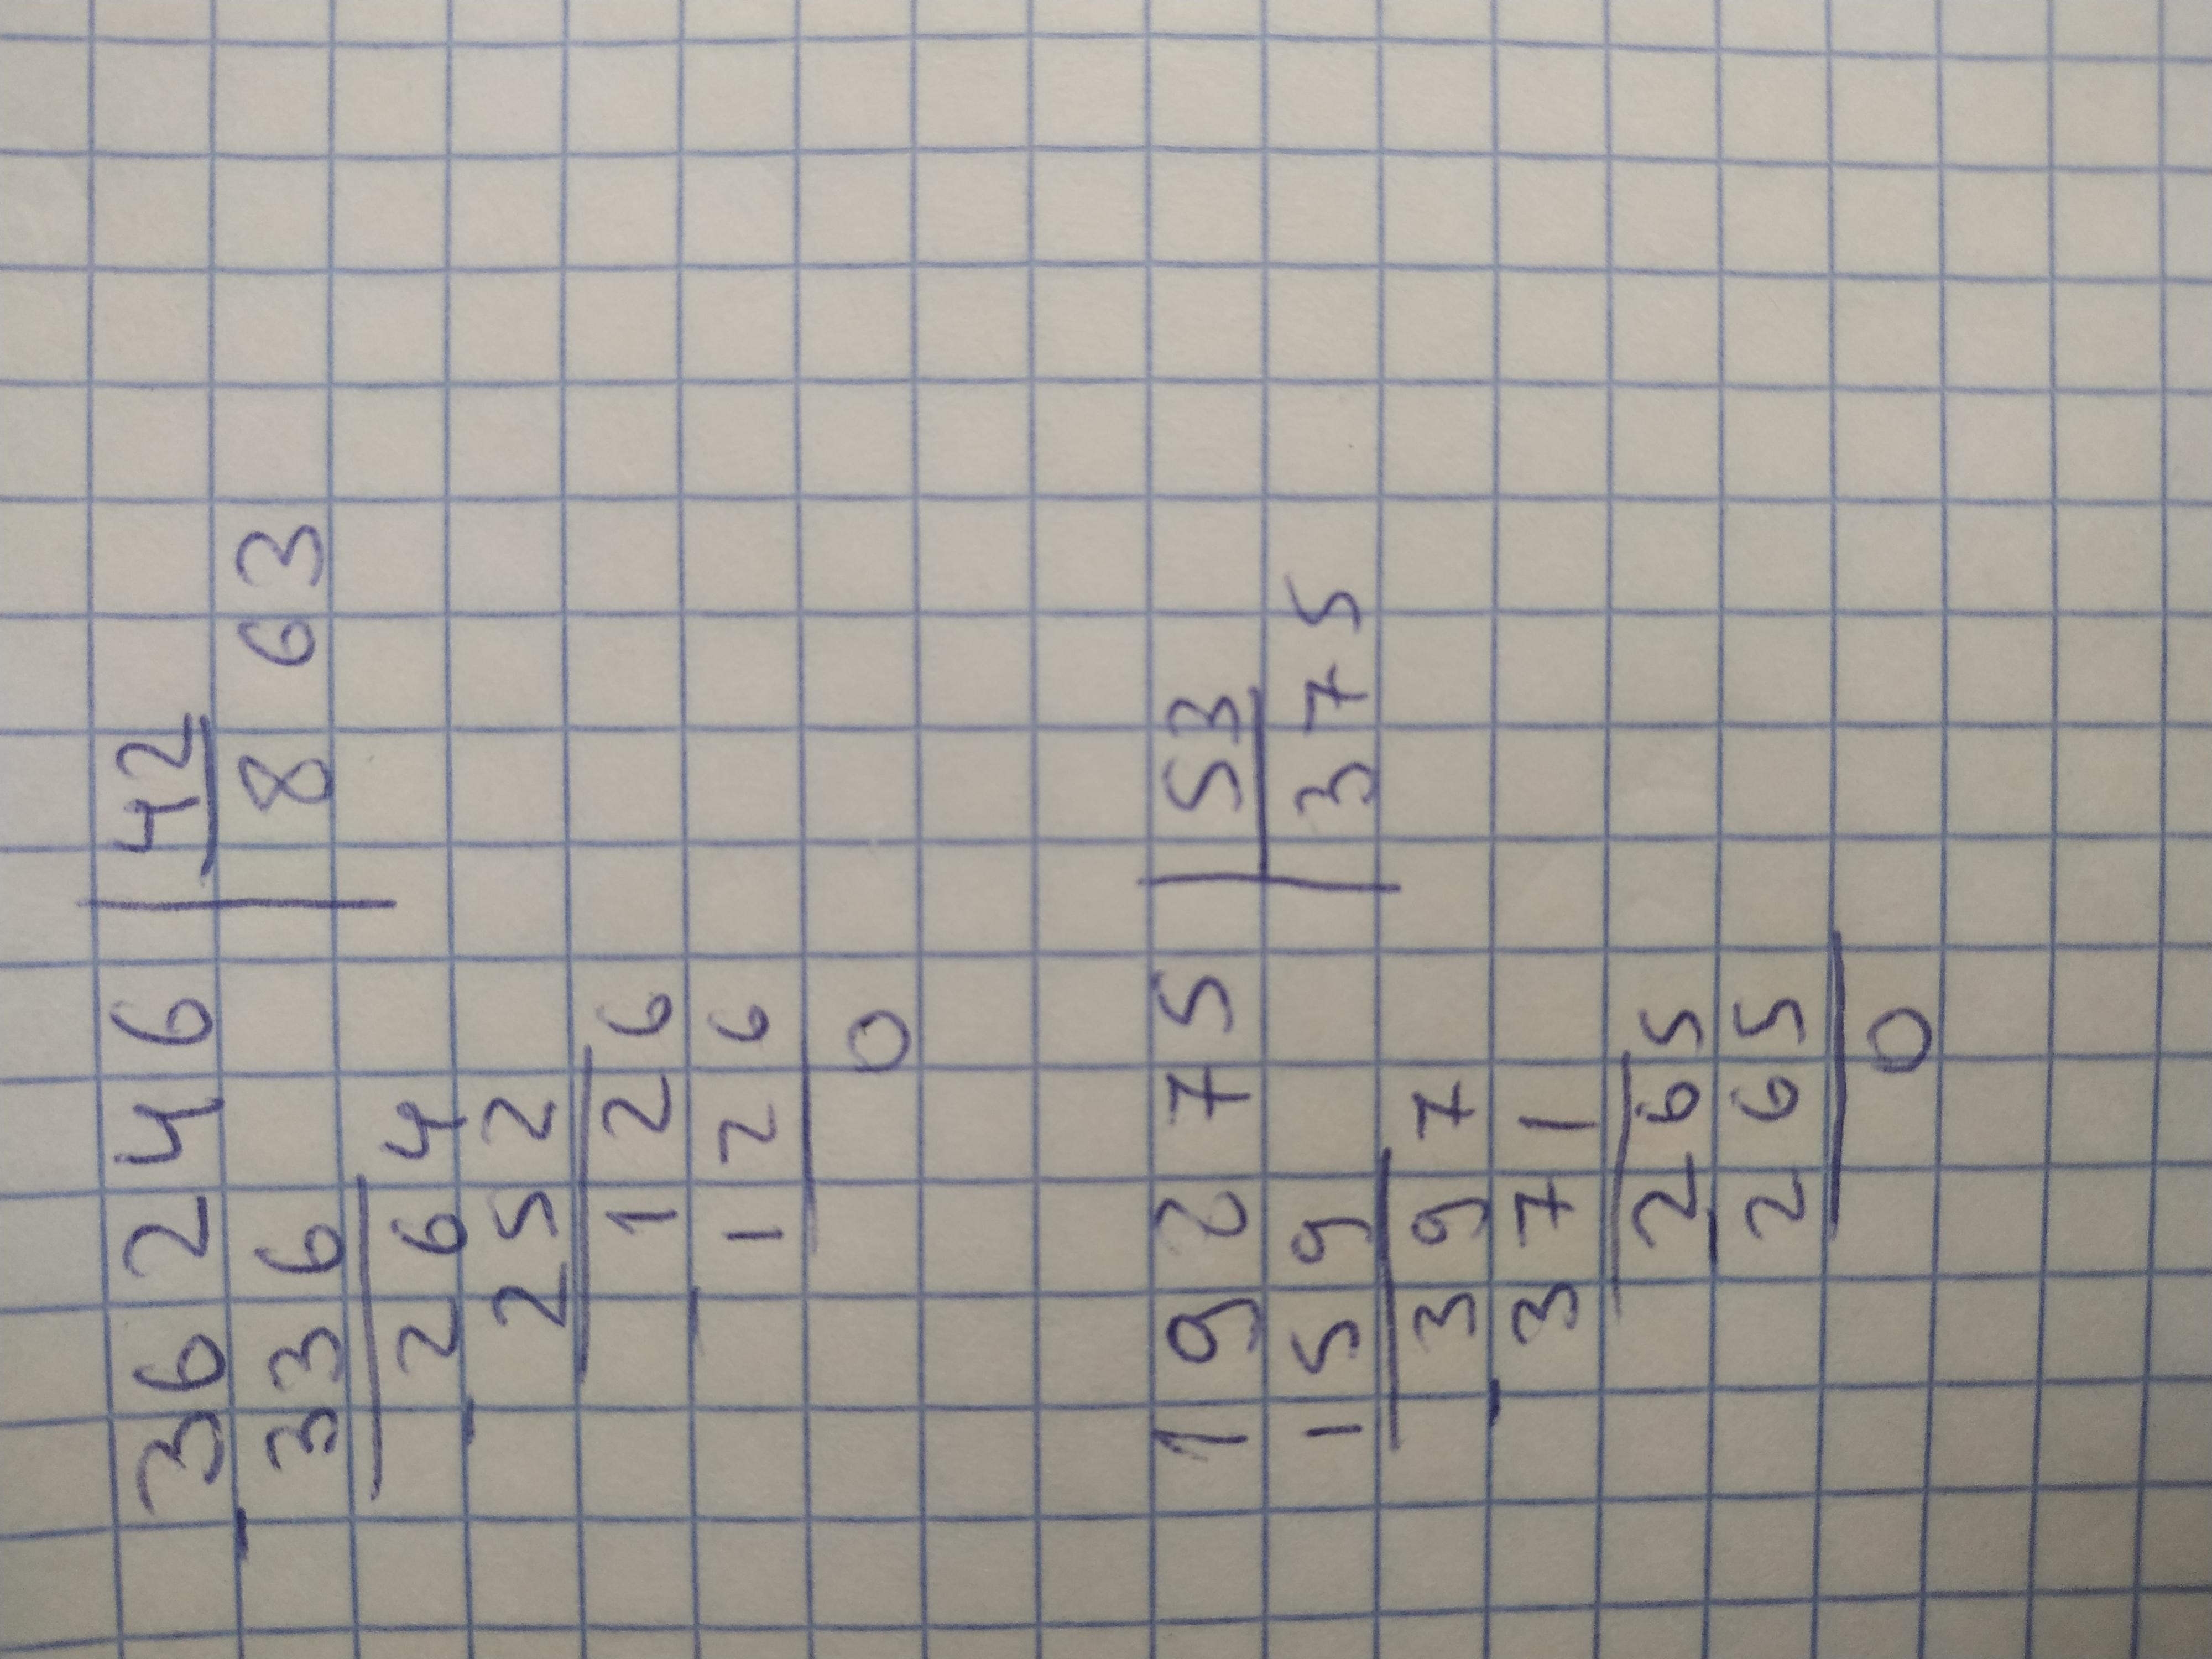 36246 | 42
- 336 | 863
264
- 252
126
- 126
0
19875 | 53
159 | 375
397
- 371
265
- 265
0